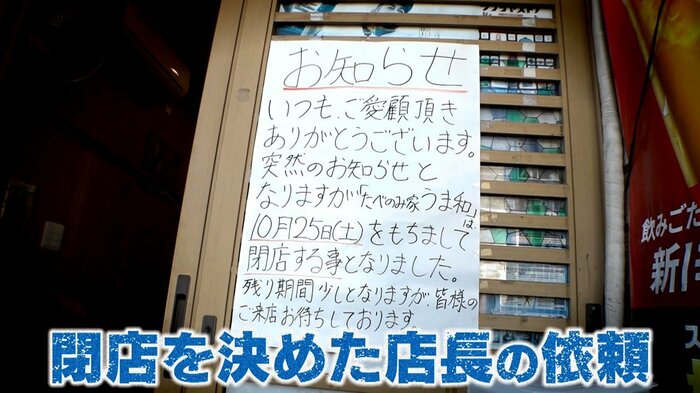 お知らせ
いつも、ご愛顧頂き
ありがとうございます。
突然のお知らせと
なりますが「たべのみ家うま和」は、
10月25日(土)をもちまして
閉店する事となりました。
残り期間少しとなりますが皆様の
ご来店お待ちしております。
飲みごた
新!
ス
閉店を決めた店長の依頼